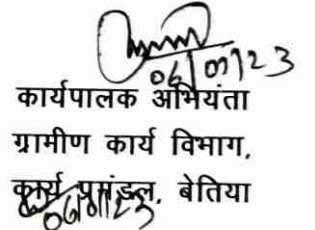 06/07/23
कार्यपालक अभियंता
ग्रामीण कार्य विभाग,
कार्य प्रमंडल, बेतिया